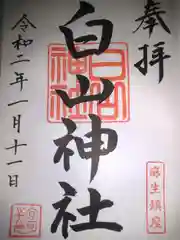 奉拝
白山神社
令和二年一月十一日
麻生鎮座